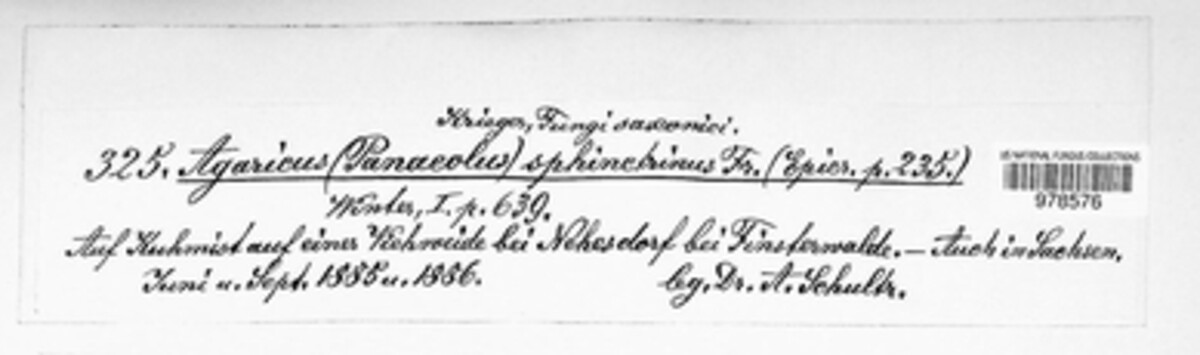 Krieger, Fungi saxonici.
325. Agaricus (Panaeolus) sphinctrinus Fr. (Epicr. p. 235.)
US NATIONAL FUNGUS COLLECTIONS
978576
Winter, I. p. 639.
Auf Kuhmist auf einer Viehweide bei Nehesdorf bei Finsterwalde. — Auch in Sachsen.
Juni u. Sept. 1885 u. 1886.
lg. Dr. A. Schultz.